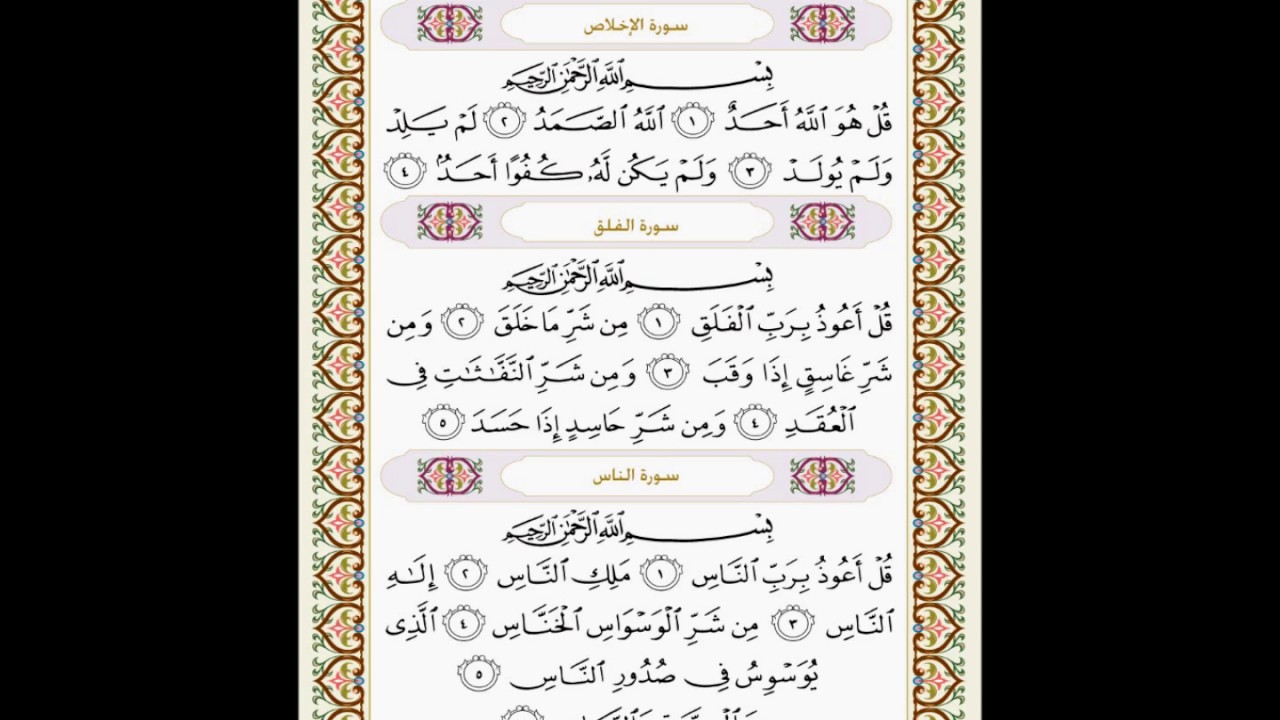 سورة الإخلاص
بِسْمِ ٱللَّهِ ٱلرَّحْمَٰنِ ٱلرَّحِيمِ
قُلْ هُوَ ٱللَّهُ أَحَدٌ ١ ٱللَّهُ ٱلصَّمَدُ ٢ لَمْ يَلِدْ
وَلَمْ يُولَدْ ٣ وَلَمْ يَكُن لَّهُۥ كُفُوًا أَحَدٌۢ ٤
سورة الفلق
بِسْمِ ٱللَّهِ ٱلرَّحْمَٰنِ ٱلرَّحِيمِ
قُلْ أَعُوذُ بِرَبِّ ٱلْفَلَقِ ١ مِن شَرِّ مَا خَلَقَ ٢ وَمِن
شَرِّ غَاسِقٍ إِذَا وَقَبَ ٣ وَمِن شَرِّ ٱلنَّفَّٰثَٰتِ فِى
ٱلْعُقَدِ ٤ وَمِن شَرِّ حَاسِدٍ إِذَا حَسَدَ ٥
سورة الناس
بِسْمِ ٱللَّهِ ٱلرَّحْمَٰنِ ٱلرَّحِيمِ
قُلْ أَعُوذُ بِرَبِّ ٱلنَّاسِ ١ مَلِكِ ٱلنَّاسِ ٢ إِلَٰهِ
ٱلنَّاسِ ٣ مِن شَرِّ ٱلْوَسْوَاسِ ٱلْخَنَّاسِ ٤ ٱلَّذِى
يُوَسْوِسُ فِى صُدُورِ ٱلنَّاسِ ٥